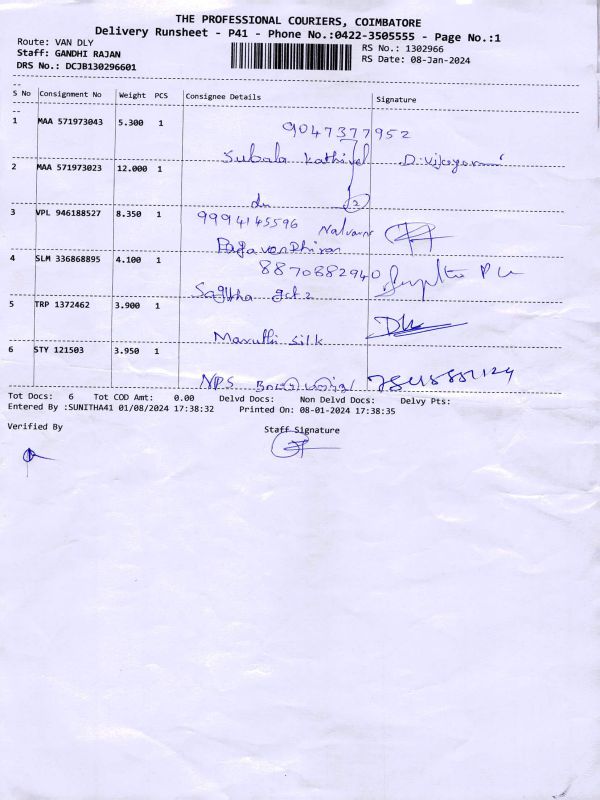 THE PROFESSIONAL COURIERS, COIMBATORE
Delivery Runsheet - P41 - Phone No.:0422-3505555 - Page No.:1
Route: VAN DLY
Staff: GANDHI RAJAN
DRS No.: DCJB130296601
RS No.: 1302966
RS Date: 08-Jan-2024
S No Consignment No Weight PCS Consignee Details Signature
1 MAA 571973043 5.300 1 9047377952
Subala Kathivel
2 MAA 571973023 12.000 1
2
3 VPL 946188527 8.350 1 9994145596
Ragavendhiran
4 SLM 336868895 4.100 1 8870882940
5 TRP 1372462 3.900 1
Maruthi silk
6 STY 121503 3.950 1
NPS
Tot Docs: 6 Tot COD Amt: 0.00 Delvd Docs: Non Delvd Docs: Delvy Pts:
Entered By :SUNITHA41 01/08/2024 17:38:32 Printed On: 08-01-2024 17:38:35
Verified By Staff Signature